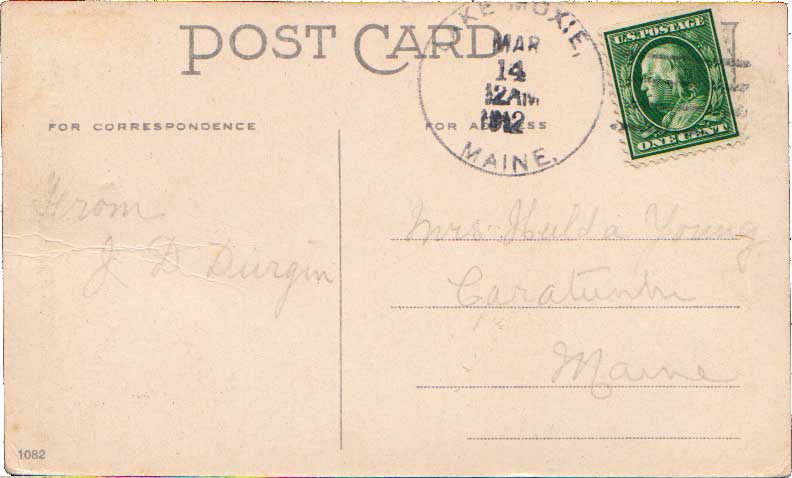 POST CARD
LAKE MOXIE,
MAR
14
12AM
1912
MAINE.
U.S. POSTAGE
ONE CENT
FOR CORRESPONDENCE
FOR ADDRESS
From
J D Durgin
Mrs Hulda Young
Caratunk
Maine
1082